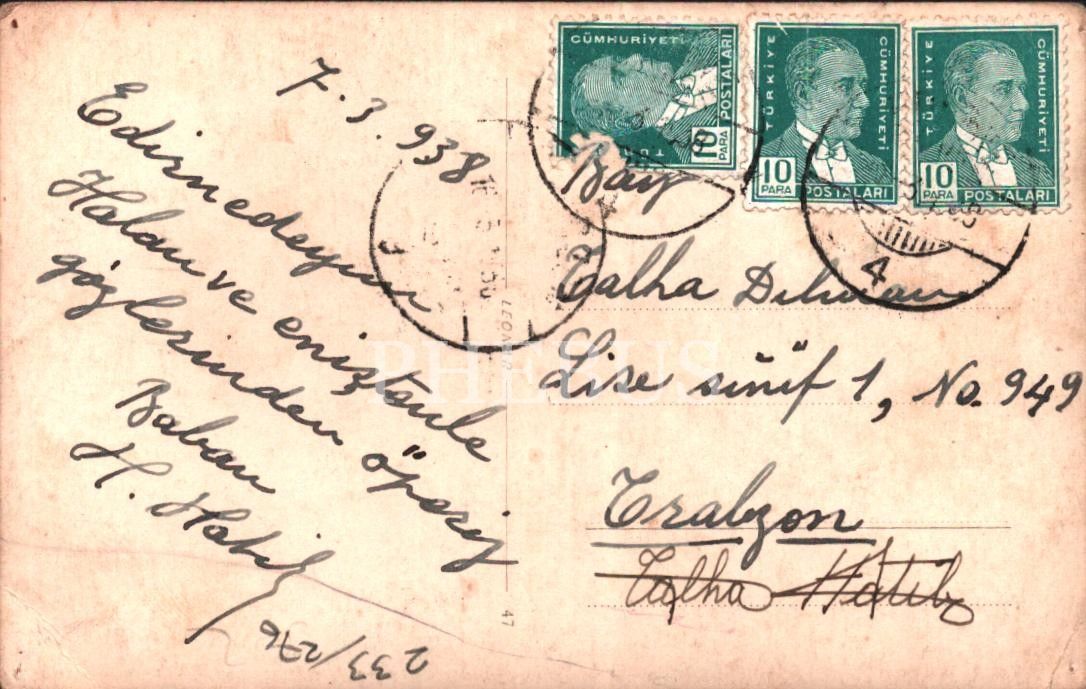 7.3.938
Edirnedeyim
Halan ve eniştenle
gözlerinden öperiz
Baban
H. Hatib
233/276
CÜMHURİYETİ
POSTALARI
10
PARA
TÜRKİYE
CÜMHURİYETİ
10
PARA
POSTALARI
TÜRKİYE
CÜMHURİYETİ
10
PARA
POSTALARI
4
4
Bay
Talha Dilidau
Lise sınıf 1, No. 949
Trabzon
Talha Hatib
47
PHEBUS